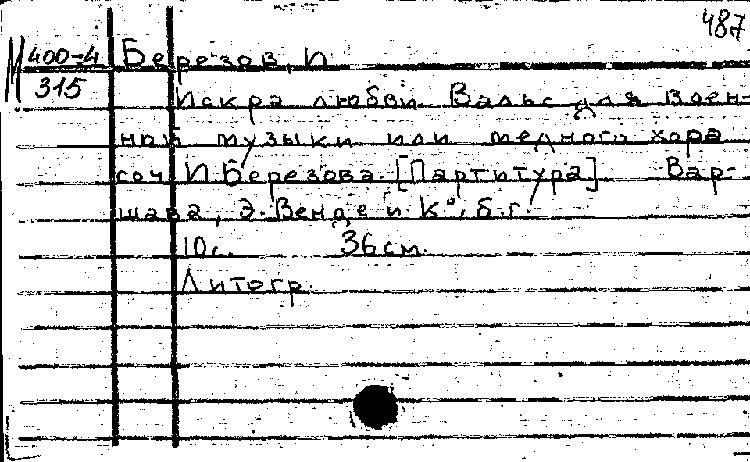 487
М 400-4
315
Березов, И.
Искра любви. Вальс для воен-
ной музыки или медного хора
соч. И. Березова. [Партитура]. Вар-
шава, Э. Венде и К°, б.г.
10с. 36см.
Литогр.